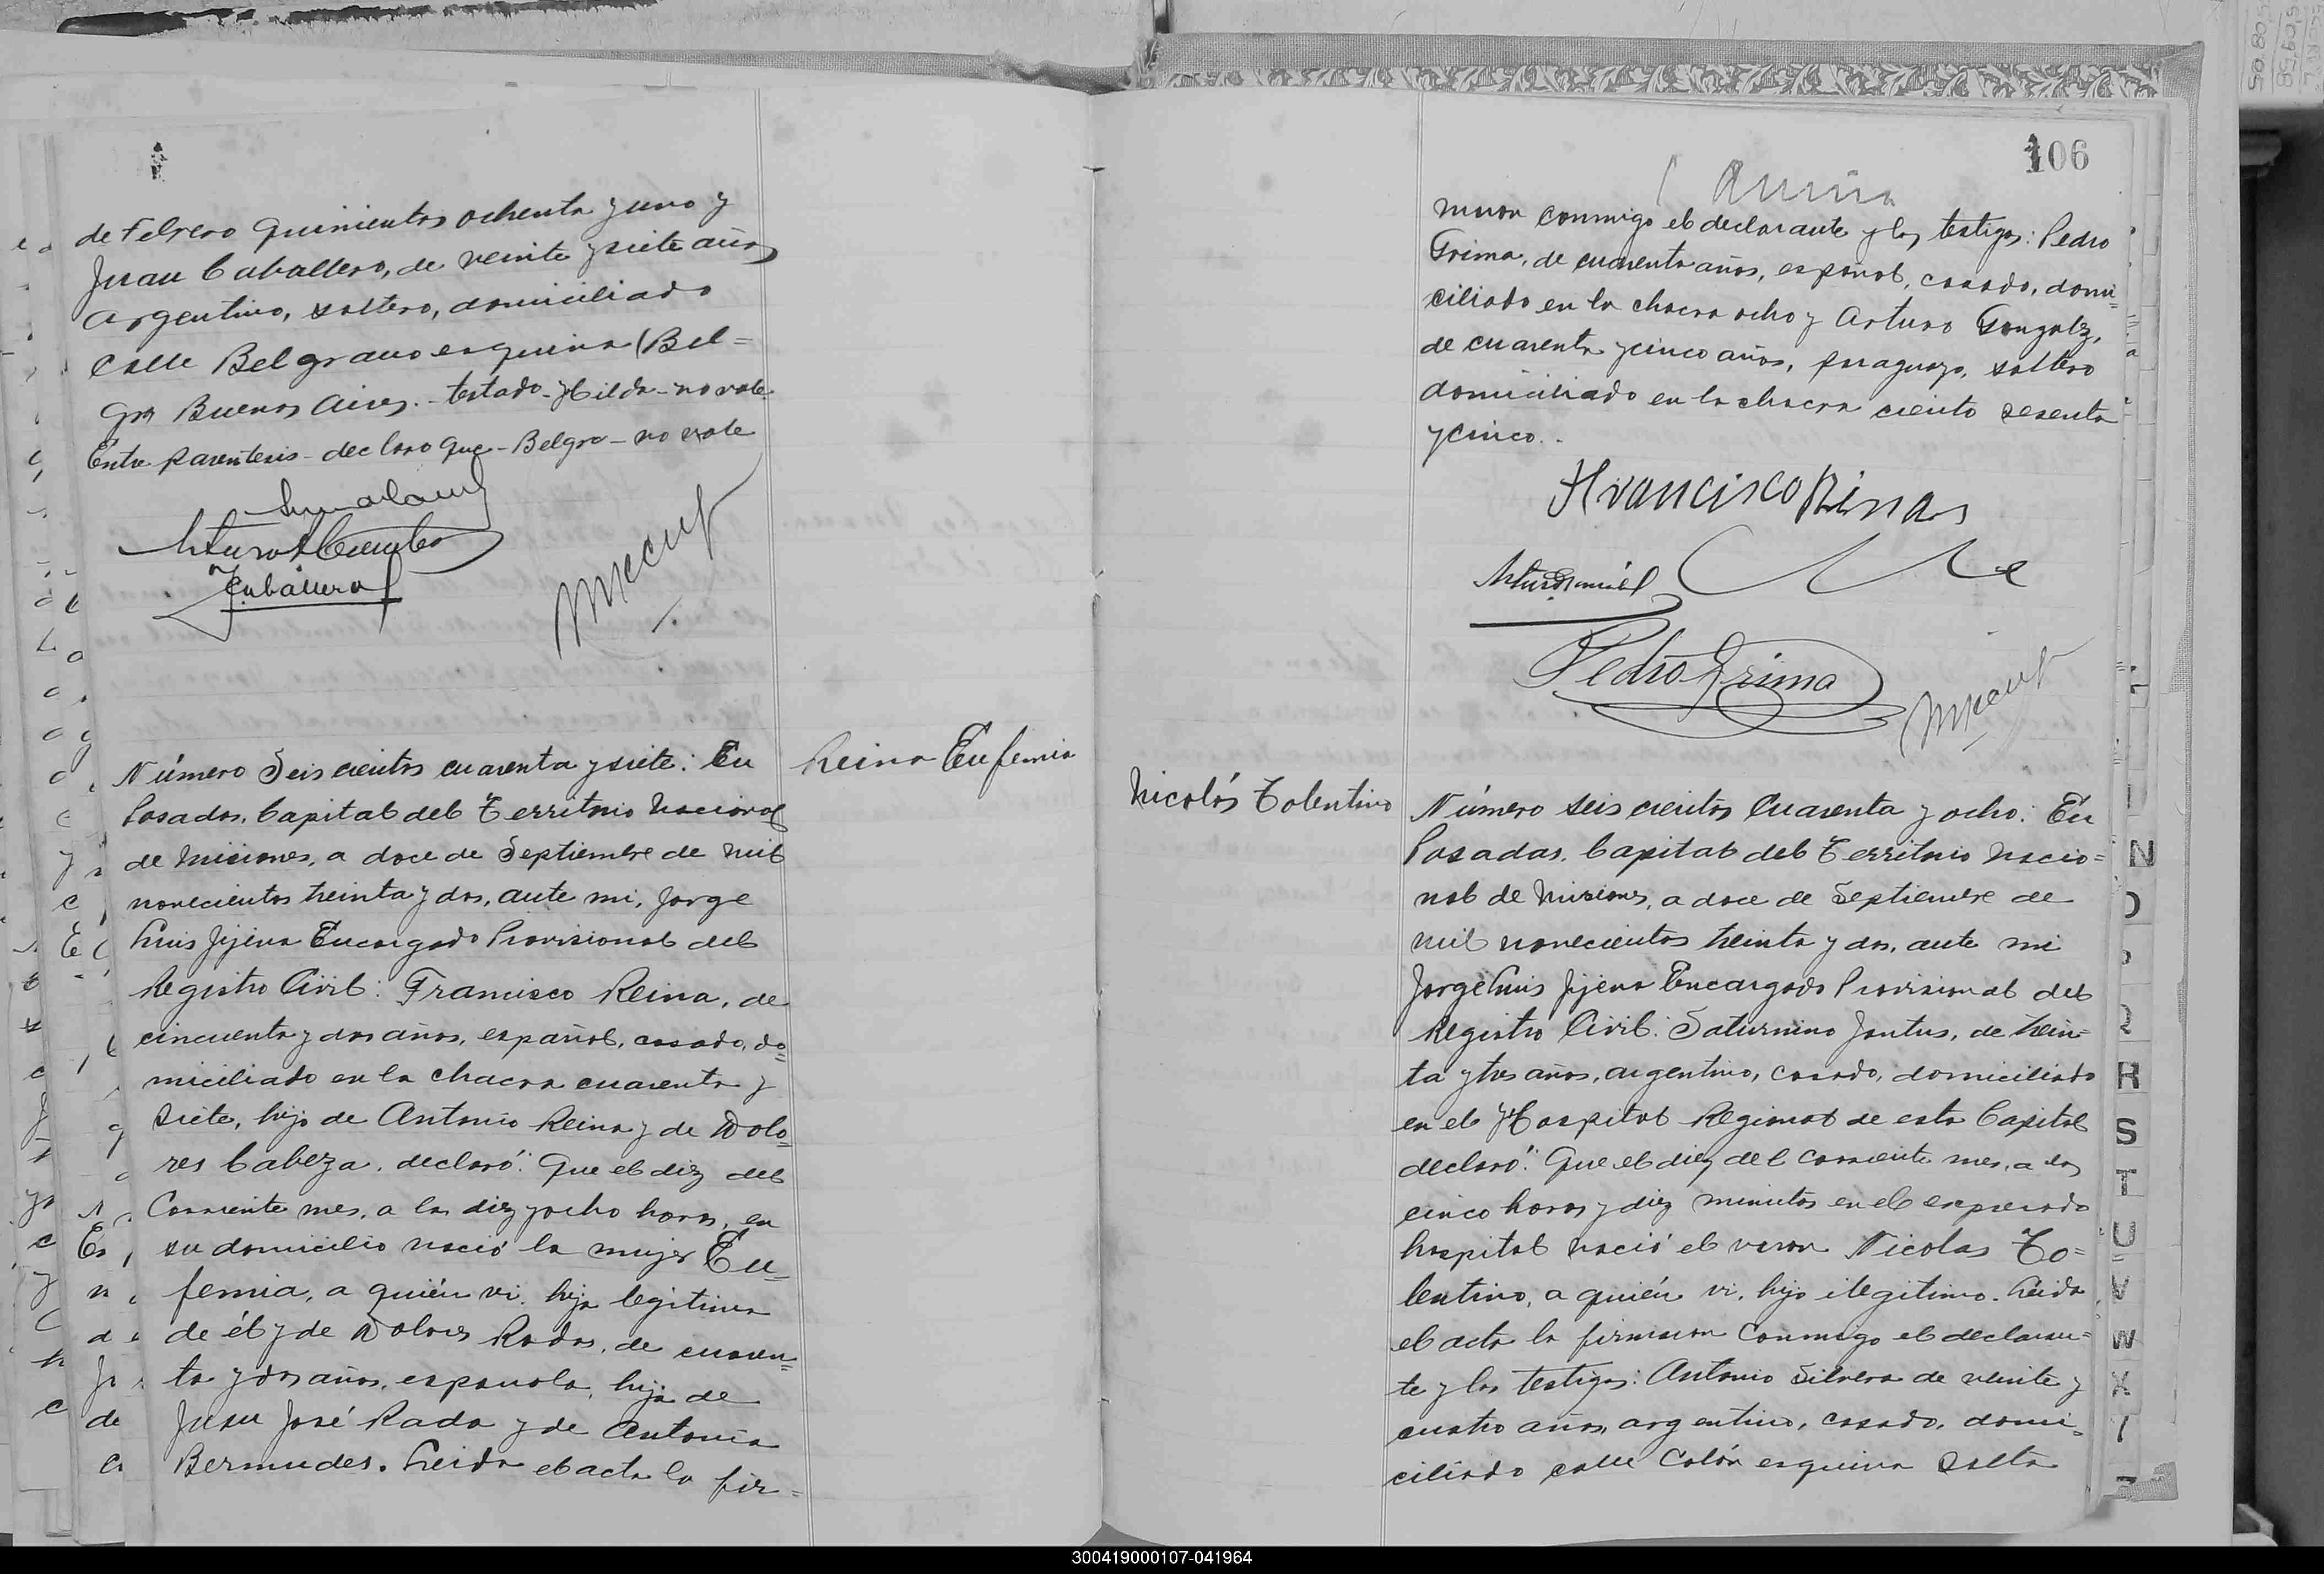 de Febrero quinientos ochenta y uno y
Juan Caballero, de veinte y siete años
argentino, soltero, domiciliado
calle Belgrano esquina (Bel=
gr) Buenos Aires.- testado- Hilda- no vale
Entre parentesis- declaro que- Belgro- no vale
Caballero
Número Seiscientos cuarenta y siete: En
Posadas, Capital del Territorio Nacional
de Misiones, a doce de Septiembre de mil
novecientos treinta y dos, ante mi, Jorge
Luis Jijena Encargado Provisional del
Registro Civil: Francisco Reina, de
cincuenta y dos años, español, casado, do=
miciliado en la chacra cuarenta y
siete, hijo de Antonio Reina y de Dolo=
res Cabeza, declaró: Que el diez del
Corriente mes, a las diez y ocho horas, en
su domicilio nació la mujer Eu=
femia, a quién vi, hija legitima
de él y de Dolores Rodas, de cuaren=
ta y dos años, española, hija de
Juan José Rada y de Antonia
Bermudes. Leida el acta la fir=
Reina Eufemia
106
maron conmigo el declarante y los testigos: Pedro
Grima, de cuarenta años, español, casado, domi=
ciliado en la chacra ocho y Arturo Gongalz,
de cuarenta y cinco años, paraguayo, soltero
domiciliado en la chacra ciento sesenta
y cinco.-
Francisco Rinas
Pedro Grima
Nicolós Tolentino
Número seiscientos Cuarenta y ocho: En
Posadas, Capital del Territorio Nacio=
nal de Misiones, a doce de Septiembre de
mil novecientos treinta y dos, ante mi
Jorge Luis Jijena Encargado Provisional del
Registro Civil: Saturnino Jantus, de trein=
ta y tres años, argentino, casado, domiciliado
en el Hospital Regional de esta Capital
declaró: Que el diez del corriente mes, a las
cinco horas y diez minutos en el expresado
hospital nació el varon Nicolas To=
lentino, a quién vi, hijo ilegitimo. Leida
el acta la firmaron Conmigo el declaran=
te y los testigos: Antonio Silvera de veinte y
cuatro años, argentino, casado, domi=
ciliado calle Colón esquina Salta
N
R
S
T
U
V
W
X
300419000107-041964